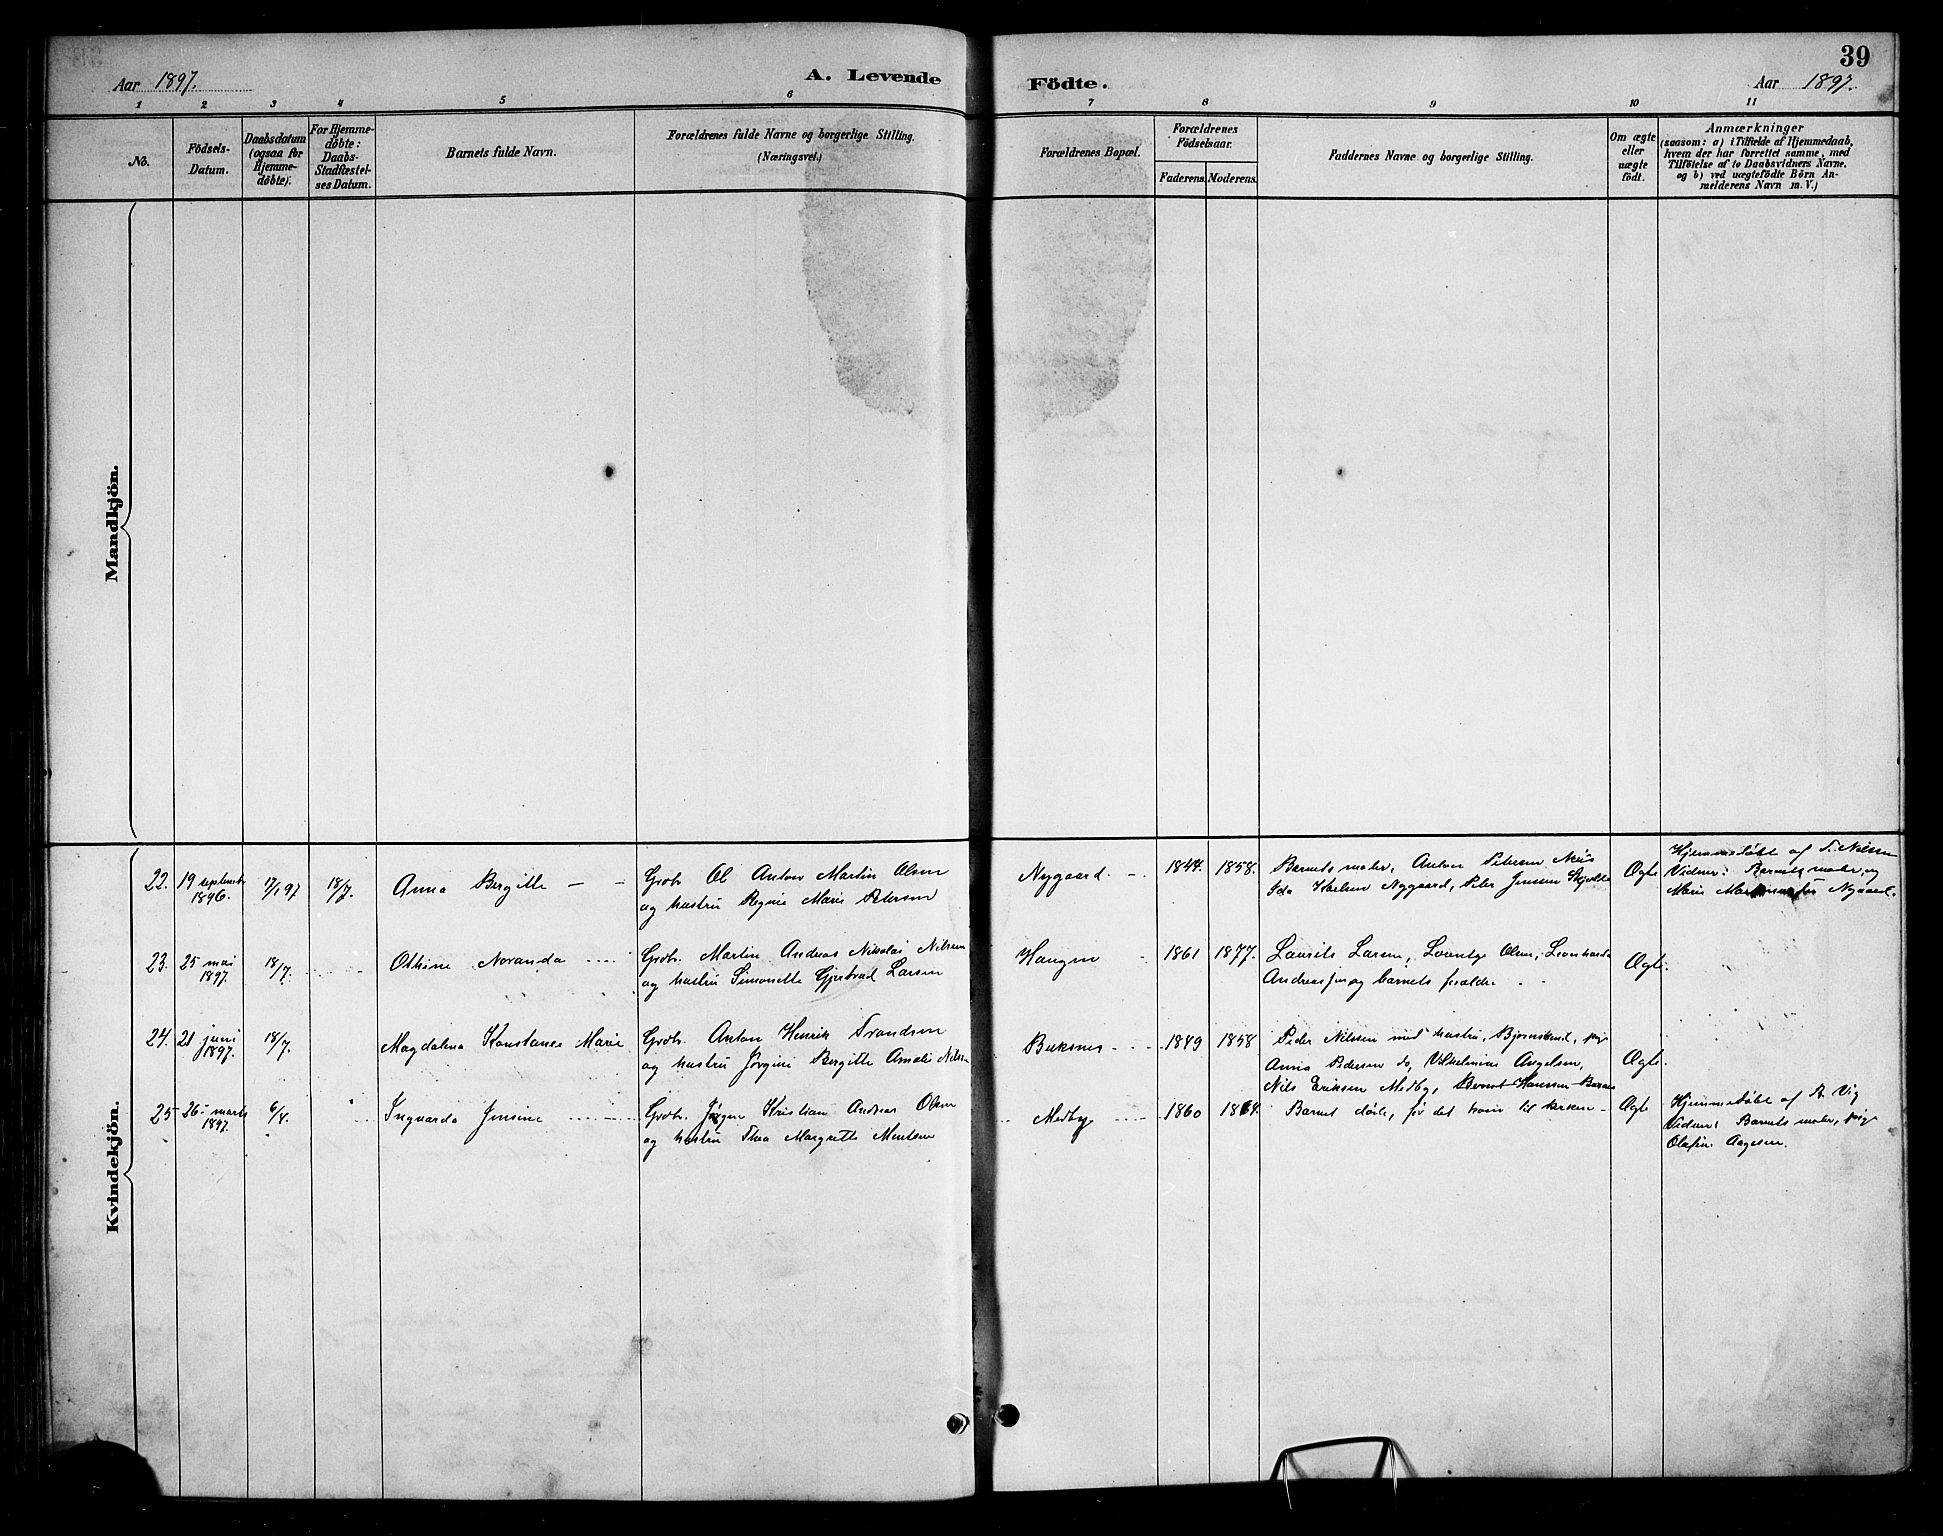 39
Aar 1897.
A. Levende
Födte.
Aar 1897.
1 2 3 4 5 6 7 8 9 10 11
No.
Födsels-
Datum.
Daabsdatum
(ogsaa for
Hjemme-
döbte).
For Hjemme-
döbte:
Daabs-
Stadfæstel-
ses Datum.
Barnets fulde Navn.
Forældrenes fulde Navne og borgerlige Stilling.
(Næringsvei.)
Forældrenes Bopæl.
Forældrenes
Födselsaar.
Faderens. Moderens.
Faddernes Navne og borgerlige Stilling.
Om ægte
eller
uægte
födt.
Anmærkninger
(saasom: a) i Tilfælde af Hjemmedaab,
hvem der har forrettet samme, med
Tilföielse af to Daabsvidners Navne.
og b) ved uægtefödte Börn An-
melderens Navn m. V.)
Mandkjön.
Kvindekjön.
22. 19 septembr
1896.
17/1 97
18/7.
Anna Bergitte
Grbr. Ol Anton Martin Olsen
og hustru Regine Marie Petersen
Nygaard.
1844.
1858.
Barnets moder, Anton Petersen
Ida Nygaard, Peter Jensen
Ægte
Hjemmedöbt af T. Nilsen
Vidner: Barnets moder, og
Marie Nygaard.
23. 25 mai
1897.
18/7.
Othine Noranda
Grbr. Martin Andreas Nikolai Nilsen
og hustru Simonette Gjertrud Larsen
Haugen
1861
1877.
Laurits Larsen, Lorentze Olsen, Leonharda
Andreasen og barnets forældre
Ægte.
24. 21 juni
1897.
18/7.
Magdalena Konstanse Marie
Grbr. Anton Henrik Trondsen
og hustru Jørgine Bergitte Amalie Nilsen
Buksnes
1849
1858
Peder Nilsen med hustru, pige
Anna Pedersen do, Angelsen,
Nils Eriksen Medby, Bernt Hansen
Ægte.
25 26 marts
1897.
6/4.
Ingvarda Jensine
Grbr. Jørgen Kristian Andreas Olsen
og hustru Thea Margrette Mentsen
Medby
1860
1864.
Barnet døde, før det kom til kirken
Ægte
Hjemmedöbt af A. Vig
Vidner: Barnets moder, pige
Olafine Aagesen.